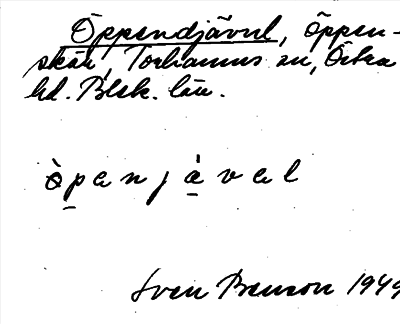 Öppendjävul, Öppen-
skär, Torhamns sn, Östra
hd. Blek. län.
òpenjàvel
Sven Benson 1949